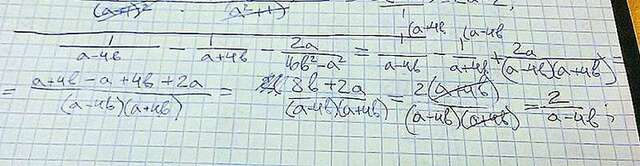 (a-1)² a²+1)
1/(a-4b) - 1/(a+4b) - 2a/(16b²-a²) = 1/(a-4b) - 1/(a+4b) + 2a/((a-4b)(a+4b)) =
= (a+4b-a+4b+2a)/((a-4b)(a+4b)) = (8b+2a)/((a-4b)(a+4b)) = 2(a+4b)/((a-4b)(a+4b)) = 2/(a-4b) ;